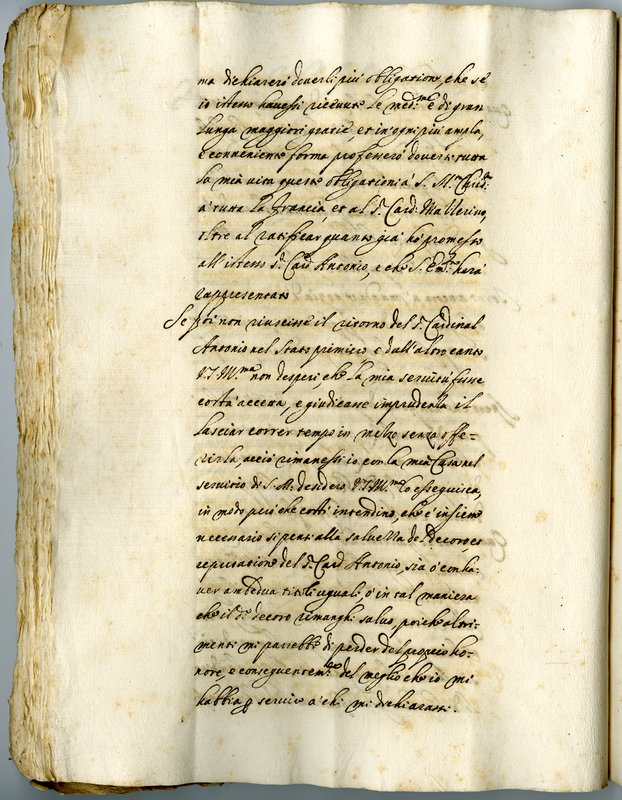 ma dichiarerò doverli più obligatione, che se
io istesso havessi ricevute le med.me e di gran
lunga maggiori gratie, et in ogni più ampla,
e conveniente forma professerò dover tutta
la mia vita queste obligationi à S. M.
à tutta la Francia, et al S.r Card. Mazzerino,
oltre al ratificar quanto già hò promesso
all'istesso S.r Card. Antonio, e che S. Em.za havrà
rappresentato
Se poi non riuscisse il ritorno del S.r Cardinal
Antonio nel stato primiero e dall'altro canto
V.S. Ill.ma non disperi, che la mia servitù fusse
costà accetta, e giudicasse imprudenza il
lasciar correr tempo in mezzo senza offe-
rirla, acciò rimanessi io con la mia Casa nel
servitio di S. M. desidero V.S. Ill.ma lo esseguisca,
in modo però che costì intendino, che è insieme
necessario si pensi alla salvezza del decoro, e
reputatione del S.r Card. Antonio, sia ò con ha-
ver ambedua titoli uguali, ò in tal maniera
che il d.o decoro rimanghi salvo, poiche altri-
menti mi parrebbe di perder del proprio ho-
nore, e conseguentem.te del meglio che io mi
habbia p servire à chi mi dichiarassi.